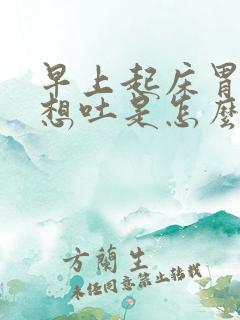 早上起床胃
想吐是怎麼
方蘭生
未经同意禁止转载